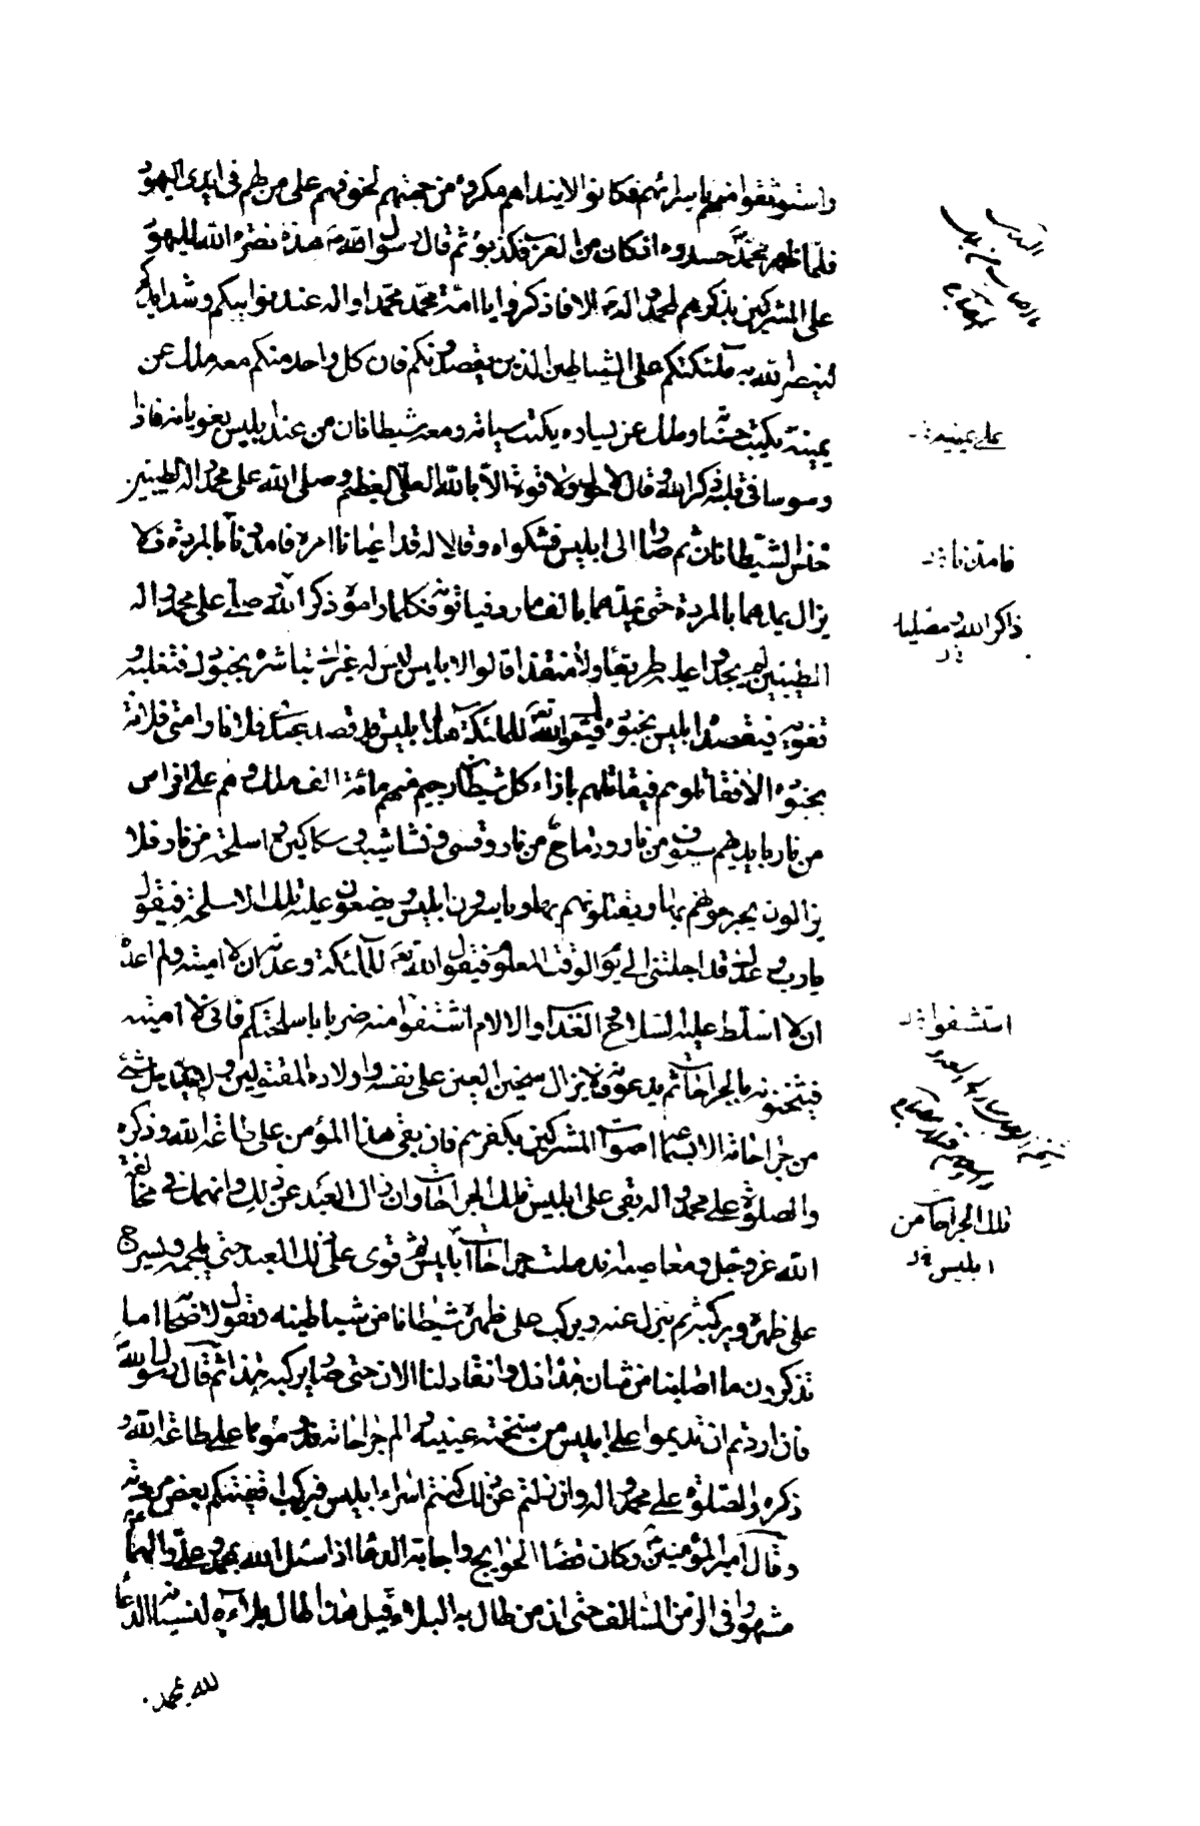 واستوثقوا منهم بأسرائهم فكانوا لا ينداهم مكروه من جهتهم لخوفهم على من لهم في ايدى اليهود
فلما ظهر محمد حسدوه اذ كان من العرب فكذبوه ثم قال رسول الله هذه نصرة الله لليهود
على المشركين بذكرهم لمحمد وآله الا فاذكروا يا امة محمد محمدا واله عند نوايبكم وشدايدكم
لينصر الله به ملئكتكم على الشياطين الذين يقصدونكم فان كل واحد منكم معه ملك عن
يمينه يكتب حسناته وملك عن يساره يكتب سيئاته ومعه شيطانان من عند ابليس يغويانه فاذا
وسوسا في قلبه ذكر الله وقال لا حول ولا قوة الا بالله العلي العظيم وصلى الله على محمد واله الطيبين
خنس الشيطانان ثم صارا الى ابليس فشكواه وقالا له قد اعيانا امره فامددنا بالمردة فلا
يزال يمدهما بالمردة حتى يمدهما بالف مارد فياتونه فكلما راموه ذكر الله وصلى على محمد واله
الطيبين لم يجدوا عليه طريقا ولا منفذا قالوا لابليس ليس له غيرك تباشره بجنودك فتغلبه
تغويه فيقصده ابليس بجنوده فيقول الله للملئكة هذا ابليس قد قصد عبدى فلانا وامتى فلانة
بجنوده الا فقاتلوهم فيقاتلهم بازاء كل شيطان رجيم منهم مائة الف ملك وهم على افراس
من نار بايديهم سيوف من نار ورماح من نار وقسى ونشاشيب وسكاكين واسلحتهم من نار فلا
يزالون يجرحونهم بها ويقتلونهم بها ويأسرون ابليس ويضعون عليه تلك الاسلحة فيقول
يا رب وعدك قد اجلتنى الى يوم الوقت المعلوم فيقول الله للملائكة وعدته ان لا اميته ولم اعده
ان لا اسلط عليه السلاح والعذاب والالام اشتفوا منه ضربا باسلحتكم فانى لا اميته
فيثخنونه بالجراحات ثم يدعونه فلا يزال سخين العين على نفسه واولاده المقتولين ولا يندمل شئ
من جراحاته الا بسماع اصوات المشركين بكفرهم فان بقى هذا المؤمن على طاعة الله وذكره
والصلوة على محمد واله بقى على ابليس تلك الجراحات وان زال العبد عن ذلك وانهمك في مخالفة
الله عز وجل ومعاصيه اندملت جراحات ابليس ثم قوى على ذلك العبد حتى يلجمه ويسرج
على ظهره ويركبه ثم ينزل عنه ويركب على ظهره شيطانا من شياطينه ويقول لاصحابه اما
تذكرون ما اصابنا من شان هذا ذل وانقاد لنا الان حتى صار يركبه هذا ثم قال رسول الله
فان اردتم ان تديموا على ابليس من سخنة عينه والم جراحاته فدوموا على طاعة الله و
ذكره والصلوة على محمد واله وان زلتم عن ذلك كنتم اسراء ابليس فيركب اقفيتكم بعض مردته
وقال امير المؤمنين وكان قضاء الحوايج واجابة الدعاء اذا سئل الله بمحمد وعلى والهما
مشهورا في الزمن السالف حتى ان من طال به البلاء قيل هذا طال بلاءه لنسيانه الدعاء
لله بمحمد
على يمينه
فامددنا
ذاكرا لله ومصليا
استشفوا
تلك الجراحات من
ابليس